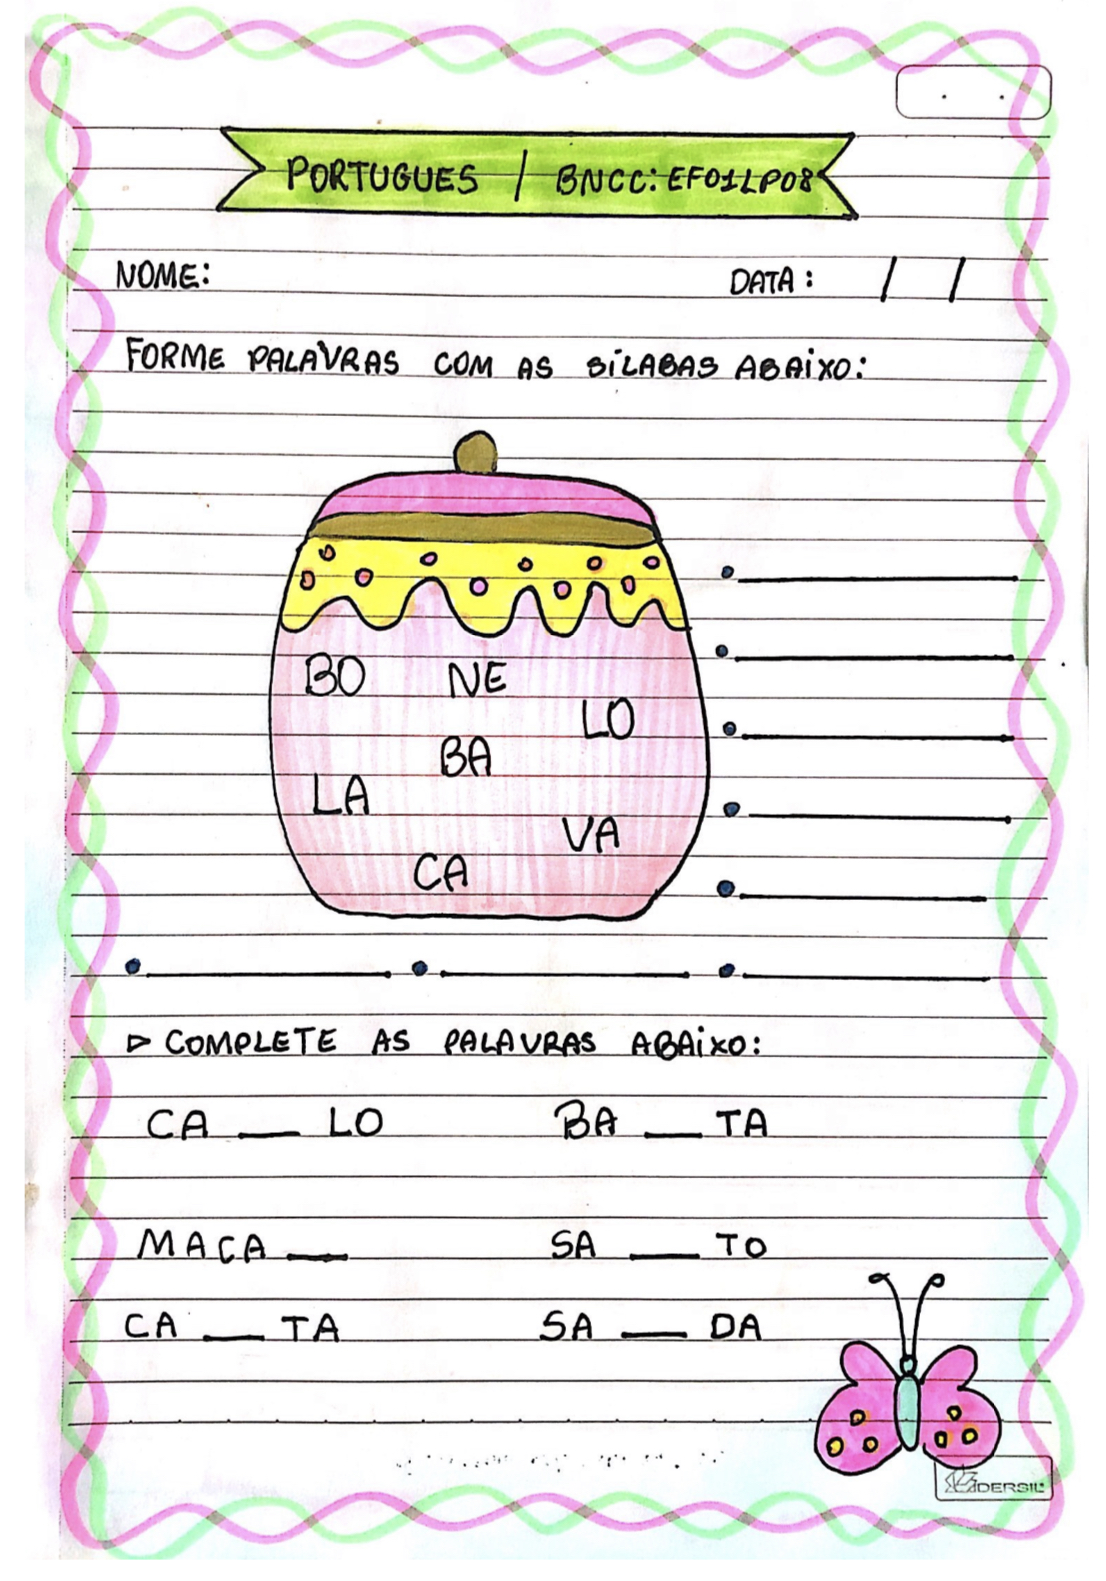 PORTUGUES / BNCC: EF01LP08
NOME: DATA: / /
FORME PALAVRAS COM AS SÍLABAS ABAIXO:
BO NE
LO
BA
LA
VA
CA
COMPLETE AS PALAVRAS ABAIXO:
CA __ LO BA __ TA
MACA __ SA __ TO
CA __ TA SA __ DA
DERSIL